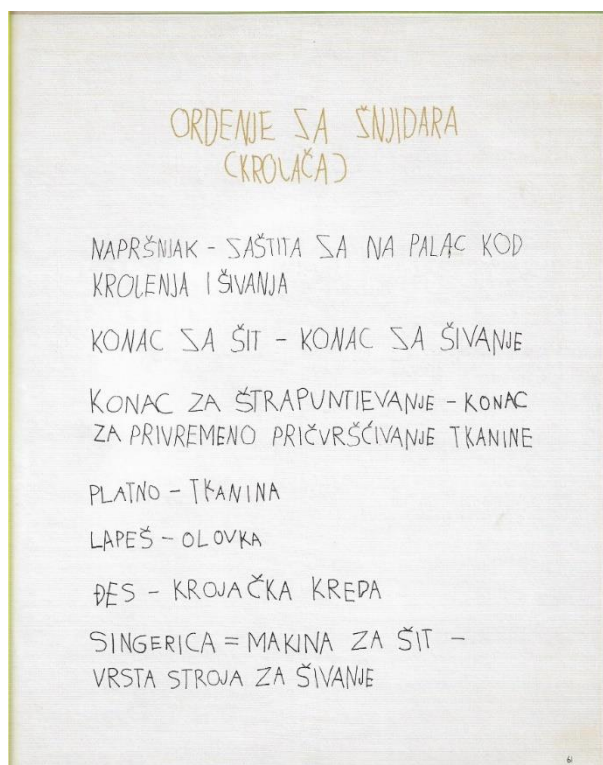 ORDENJE ZA ŠNJIDARA
(KROLAČA)
NAPRŠNJAK - ZAŠTITA ZA NA PALAC KOD
KROLENJA I ŠIVANJA
KONAC ZA ŠIT - KONAC ZA ŠIVANJE
KONAC ZA ŠTRAPUNTIEVANJE - KONAC
ZA PRIVREMENO PRIČVRŠĆIVANJE TKANINE
PLATNO - TKANINA
LAPEŠ - OLOVKA
ĐES - KROJAČKA KREDA
SINGERICA = MAKINA ZA ŠIT -
VRSTA STROJA ZA ŠIVANJE
61